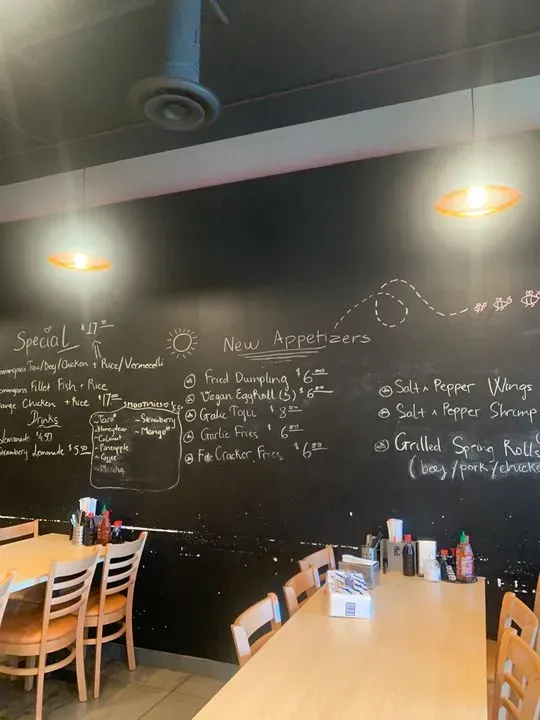 Special $17.00
Tofu/Beef/Chicken + Rice/Vermecelli
Fillet Fish + Rice
Chicken + Rice $17.00
Drinks
$4.50
Lemonade $5.50
SMOOTHIES
~Taro
~Honeydew
~Coconut
~Pineapple
~Coffee
~Matcha
~Strawberry
~Mango
New Appetizers
Fried Dumpling $6.00
Vegan EggRoll (3) $6.00
Garlic Tofu $8.00
Garlic Fries $6.00
Fire Cracker Fries $6.00
Salt n Pepper Wings
Salt n Pepper Shrimp
Grilled Spring Rolls
(beef/pork/chicke